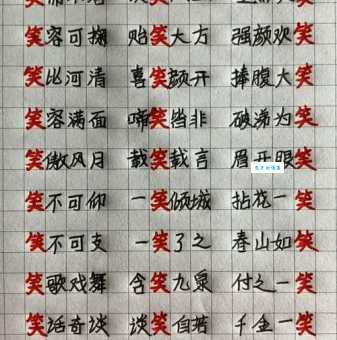 笑容可掬 贻笑大方 强颜欢笑
笑比河清 喜笑颜开 捧腹大笑
笑容满面 啼笑皆非 破涕为笑
笑傲风月 载笑载言 眉开眼笑
笑不可仰 一笑倾城 拈花一笑
笑不可支 一笑了之 春山如笑
笑歌戏舞 含笑九泉 付之一笑
笑话奇谈 谈笑自若 千金一笑